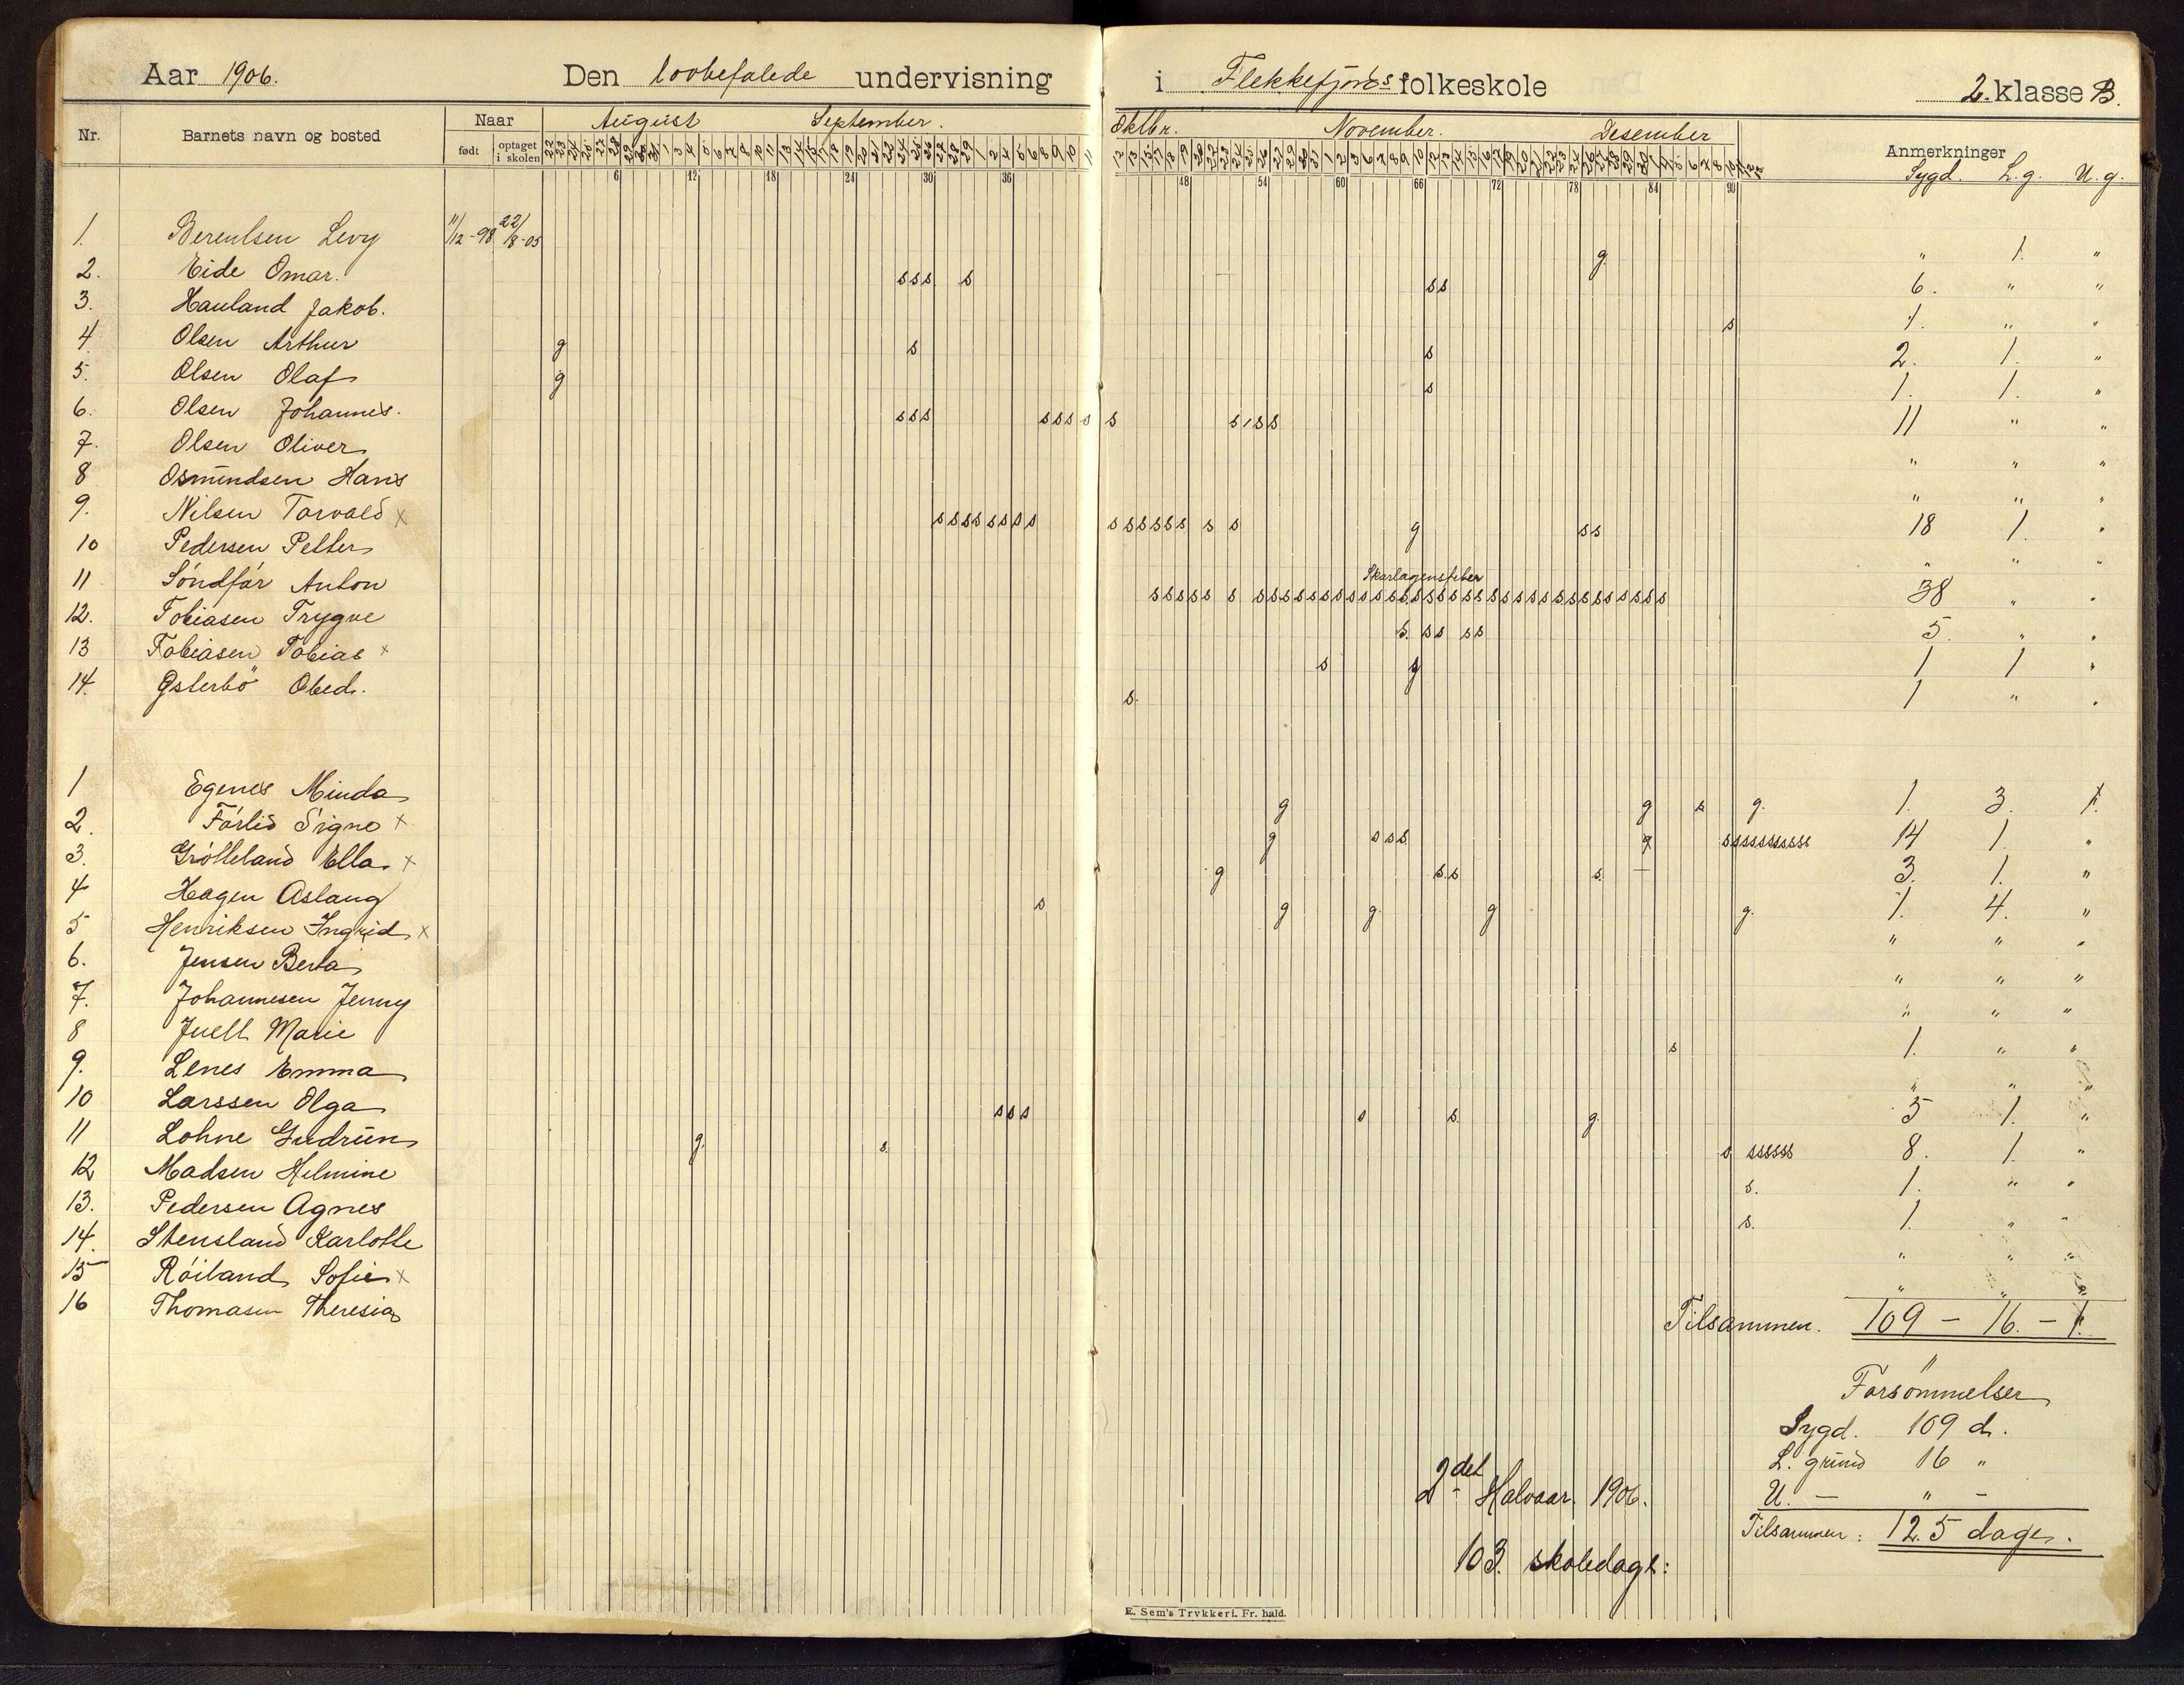 Aar 1906. Den lovbefalede undervisning i Flekkefjords folkeskole 2. klasse B.
Nr. Barnets navn og bosted Naar født optaget i skolen August September. Oktbr. November. Desember Anmerkninger
Sygd. L.g. U.g.
6 12 18 24 30 36 48 54 60 66 72 78 84 90
1. Berentsen Levy 11/12-98 22/8-05 g. " 1. "
2. Eide Omar. sss s ss 6. " "
3. Hauland Jakob. s 1. " "
4 Olsen Arthur g s s 2. 1. "
5. Olsen Olaf g s 1. 1. "
6. Olsen Johannes. sss ssss s ssss 11 " "
7. Olsen Oliver " " "
8 Osmundsen Hans " " "
9. Nilsen Torvald x ssssssss ssssss s s g ss 18 1. "
10 Pedersen Petter " " "
Skarlagensfeber
11 Söndfär Anton 38 " "
12. Tobiasen Trygve s. ss ss 5. " "
13 Tobiasen Tobias x s g 1 1 "
14. Österbö Obed. s. 1 " "
1 Egenes Minda g g s g. 1. 3. 1.
2. Förlid Signe x g sss g ssssssssss 14 1. "
3. Grötteland Ella x g s.s s. — 3. 1. "
4 Hagen Aslaug s g g. g g. 1. 4. "
5 Henriksen Ingrid x " " "
6. Jensen Berta " " "
7. Johannesen Jenny " " "
8 Juell Marie s 1. " "
9. Lenes Emma " " "
10 Larssen Olga sss s s. g. 5 1. "
11 Lohne Gudrun g. s. s ssssss 8. 1. "
12 Madsen Helmine s. 1. " "
13. Pedersen Agnes s. 1. " "
14. Stensland Karlotte " " "
15 Röiland Sofie x " " "
16 Thomasen Theresia
Tilsammen. 109 — 16. — 1.
"
Forsömmelser
Sygd. 109 d.
L. grund 16 "
U. — " —
Tilsammen: 125 dage.
2det Halvaar. 1906.
103. skoledage:
E. Sem's Trykkeri. Fr. hald.